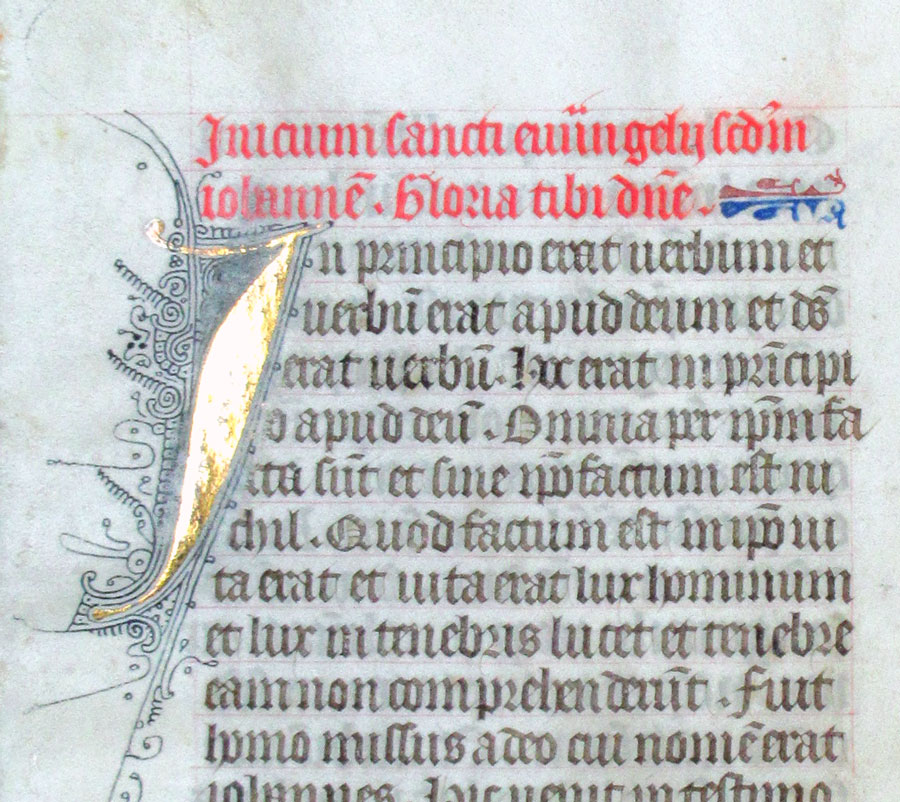 Inicium sancti euuangelij scdm̄
iohannē . Gloria tibi dn̄e .
In principio erat uerbum et
uerbū erat apud deum et ds̄
erat uerbū . Hoc erat in prīcipi
o apud deū . Omnia per ip̄m fa
cta sūt et sine ip̄o factum est ni
chil . Quod factum est in ip̄o ui
ta erat et uita erat lux hominum
et lux in tenebris lucet et tenebre
eam non comprehenderūt . Fuit
homo missus a deo cui nomē erat
iohannes . Hic uenit in testimo